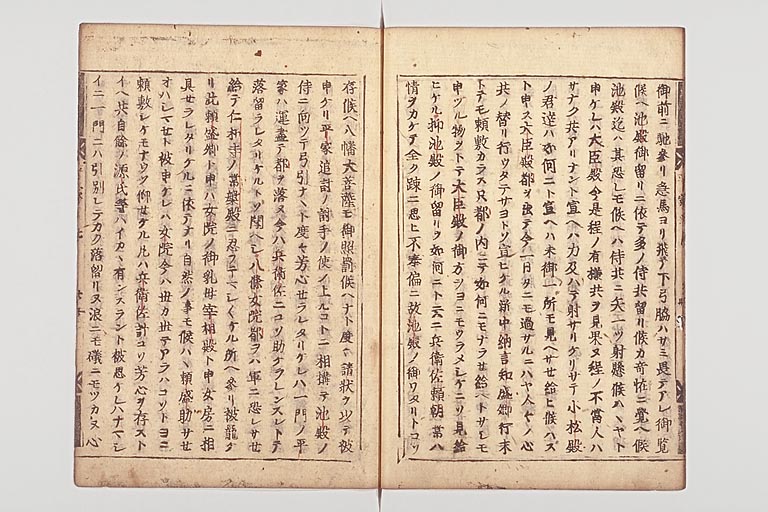 御前ニ馳参リ急馬ヨリ飛下弓脇ハサミ畏テアレ御覧
候ヘ池殿御留リニ依テ多ノ侍共留リ候カ奇恠ニ覚ヘ候
池殿迄ハ其恐レモ候ヘハ侍共ニ矢一ツ射懸候ハヽヤト
申ケレハ大臣殿今是程ノ有様共ヲ見果ヌ程ノ不當人ハ
サナク共アリナント宣ヘハ力及ハテ射サリケリサテ小松殿
ノ君達ハ如何ニト宣ヘハ未御一所モ見ヘサせ給ヒ候ハス
ト申ス大臣殿都ヲ出テ今一日タニモ過サルニハヤ人々ノ心
共ノ替リ行ウタテサヨトソ宣ヒケル新中納言知盛卿行末
トテモ頼敷カラス只都ノ内ニテ如何ニモナラせ給ヘトサレモ
申ツル物ヲトテ大臣殿ノ御方ヲツヨニモツラメシケニソ見給
ヒケル抑池殿ノ御留リヲ如何ニト云ニ兵衛佐頼朝常ハ
情ヲカケテ全ク疎ニ思ヒ不奉偏ニ故池殿ノ御ワタリトコソ
存候ヘ八幡大菩薩モ御照罸候ヘナト度々請状ヲ以テ被
申ケリ平家追討ノ討手ノ使ノ上ルコトニ相構テ池殿ノ
侍ニ向ツテ弓引ナヽト度々芳心せラレタリケレハ一門ノ平
家ハ運盡テ都ヲ落ヌ今ハ兵衛佐ニコソ助ケラレンスレトテ
落留ラレタリケルトソ聞ヘシ八條女院都ヲハ軍ニ恐レサせ
給テ仁和寺ノ常葉殿ニ忍フテマシ〱ケル所ヘ参リ被籠ケ
リ此頼盛卿ト申ハ女院ノ御乳母宰相殿ト申女房ニ相
具せラレタリケルニ依テナリ自然ノ事モ候ハヽ頼盛助サせ
オハシマせト被申ケレハ女院今ハ世カ世テアラハコソトヨニ
頼敷レケモナウソ仰せケル凡ハ兵衛佐計コソ芳心ヲ存スト
イヘ共自餘ノ源氏等ハイカヽハ有ンスラント被思ケレハナマシ
イニ一門ニハ引別レテカク落留リヌ浪ニモ礒ニモツカヌ心